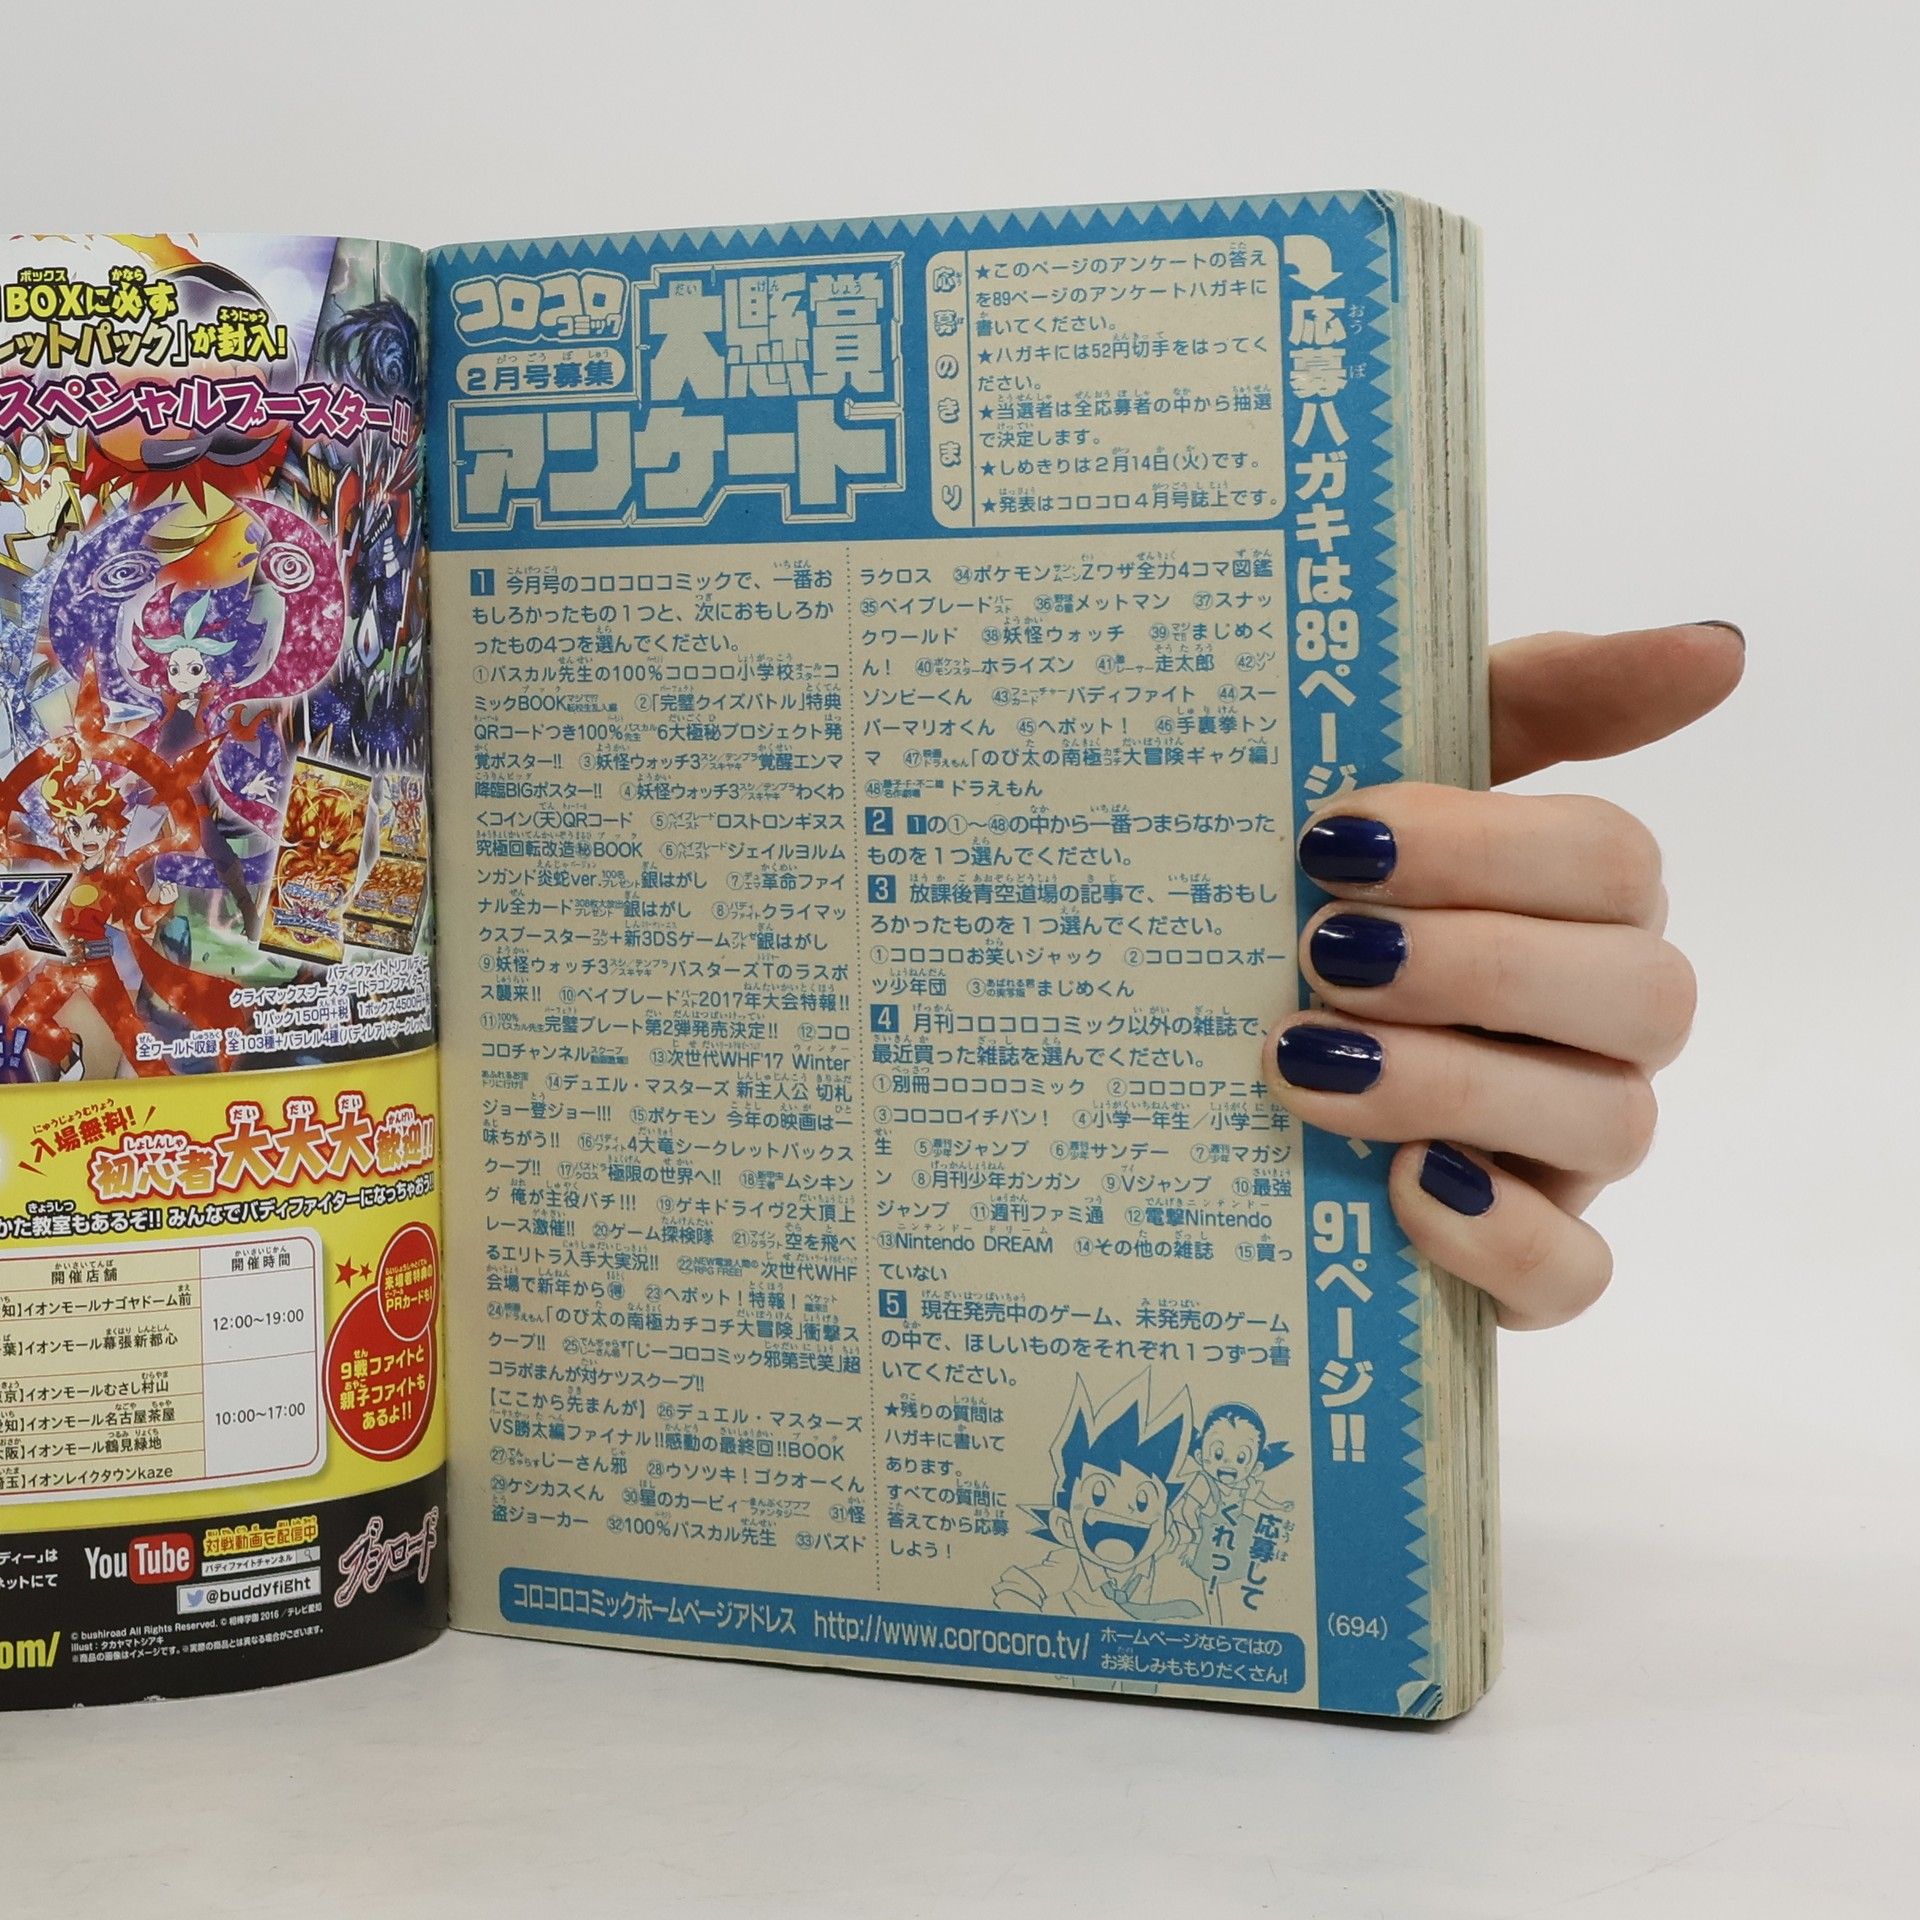 BOXに必ず
レットパック」が封入!
スペシャルブースター!!
バディファイト トリプルディー
クライマックスブースター「ドラゴンファイターズ
1パック150円+税 1ボックス4500円+税
全ワールド収録 全103種+パラレル4種(バディレア)+シークレット
入場無料!
初心者大大大歓迎!!
かた教室もあるぞ!! みんなでバディファイターになっちゃおう!!
開催店舗 開催時間
知】イオンモールナゴヤドーム前
葉】イオンモール幕張新都心
12:00~19:00
京】イオンモールむさし村山
知】イオンモール名古屋茶屋
阪】イオンモール鶴見緑地
埼玉】イオンレイクタウンkaze
10:00~17:00
来場者特典の
PRカードも!
9戦ファイトと
親子ファイトも
あるよ!!
ディー」は
ネットにて
YouTube
対戦動画を配信中
バディファイトチャンネル
@buddyfight
ブシロード
om/
© bushiroad All Rights Reserved. © 相棒学園2016/テレビ愛知
illust:タカヤマトシアキ
※商品の画像はイメージです。※実際の商品とは異なる場合がございます。
コロコロコミック
2月号募集
大懸賞
アンケート
応募のきまり
★このページのアンケートの答え
を89ページのアンケートハガキに
書いてください。
★ハガキには52円切手をはってく
ださい。
★当選者は全応募者の中から抽選
で決定します。
★しめきりは2月14日(火)です。
★発表はコロコロ4月号誌上です。
1 今月号のコロコロコミックで、一番お
もしろかったもの1つと、次におもしろか
ったもの4つを選んでください。
①パスカル先生の100%コロコロ小学校オールスターコ
ミックBOOKマジで!?転校生乱入編 ②「完璧クイズバトル」特典
QRコードつき100%パスカル先生6大極秘プロジェクト発
覚ポスター!! ③妖怪ウォッチ3スシ/テンプラ/スキヤキ覚醒エンマ
降臨BIGポスター!! ④妖怪ウォッチ3スシ/テンプラ/スキヤキわくわ
くコイン(天)QRコード ⑤ベイブレードバーストロストロンギヌス
究極回転改造㊙BOOK ⑥ベイブレードバーストジェイルヨルム
ンガンド炎蛇ver.100名プレゼント銀はがし ⑦デュエマ革命ファイ
ナル全カード308枚大放出プレゼント銀はがし ⑧バディファイトクライマッ
クスブースターフルコン+新3DSゲームプレゼント銀はがし
⑨妖怪ウォッチ3スシ/テンプラ/スキヤキバスターズTのラスボ
ス襲来!! ⑩ベイブレードバースト2017年大会特報!!
⑪100%パスカル先生完璧プレート第2弾発売決定!! ⑫コロ
コロチャンネルスクープ動画激増!! ⑬次世代WHF'17 Winter
あふれるお宝トリに行け!! ⑭デュエル・マスターズ 新主人公 切札
ジョー登ジョー!!! ⑮ポケモン 今年の映画は一
味ちがう!! ⑯バディファイト4大竜シークレットパックス
クープ!! ⑰パズドラクロス極限の世界へ!! ⑱新甲虫王者ムシキン
グ 俺が主役バチ!!! ⑲ゲキドライヴ2大頂上
レース激催!! ⑳ゲーム探検隊 ㉑マインクラフト空を飛べ
るエリトラ入手大実況!! ㉒NEW電波人間のRPG FREE! 次世代WHF
会場で新年から㊝ ㉓ヘボット!特報!
㉔映画ドラえもん「のび太の南極カチコチ大冒険」衝撃ス
クープ!! ㉕でんぢゃらすじーさん邪「じーコロコミック邪第弐笑」超
コラボまんが対ケツスクープ!!
【ここから先まんが】㉖デュエル・マスターズ
VS勝太編ファイナル!!感動の最終回!!BOOK
㉗でんぢゃらすじーさん邪 ㉘ウソツキ!ゴクオーくん
㉙ケシカスくん ㉚星のカービィまんぷくプププファンタジー ㉛怪
盗ジョーカー ㉜100%パスカル先生 ㉝パズド
ラクロス ㉞ポケモンサン・ムーンZワザ全力4コマ図鑑
㉟ベイブレードバースト ㊱野球の星メットマン ㊲スナッ
クワールド ㊳妖怪ウォッチ ㊴マジでまじめく
ん! ㊵ポケットモンスターホライズン ㊶炎レーサー走太郎 ㊷ゾゾゾ
ゾンビーくん ㊸フューチャーカードバディファイト ㊹スー
パーマリオくん ㊺ヘボット! ㊻手裏拳トン
マ ㊼映画ドラえもん「のび太の南極カチコチ大冒険ギャグ編」
㊽藤子・F・不二雄名作劇場 ドラえもん
2 1の①~㊽の中から一番つまらなかった
ものを1つ選んでください。
3 放課後青空道場の記事で、一番おもし
ろかったものを1つ選んでください。
①コロコロお笑いジャック ②コロコロスポー
ツ少年団 ③あばれる君の実写版まじめくん
4 月刊コロコロコミック以外の雑誌で、
最近買った雑誌を選んでください。
①別冊コロコロコミック ②コロコロアニキ
③コロコロイチバン! ④小学一年生/小学二年
生 ⑤週刊少年ジャンプ ⑥週刊少年サンデー ⑦週刊少年マガジ
ン ⑧月刊少年ガンガン ⑨Vジャンプ ⑩最強
ジャンプ ⑪週刊ファミ通 ⑫電撃Nintendo
⑬Nintendo DREAM ⑭その他の雑誌 ⑮買っ
ていない
5 現在発売中のゲーム、未発売のゲーム
の中で、ほしいものをそれぞれ1つずつ書
いてください。
★残りの質問は
ハガキに書いて
あります。
すべての質問に
答えてから応募
しよう!
応募して
くれっ!
コロコロコミックホームページアドレス http://www.corocoro.tv/ ホームページならではの
お楽しみももりだくさん!
応募ハガキは89ページ、91ページ!!
(694)